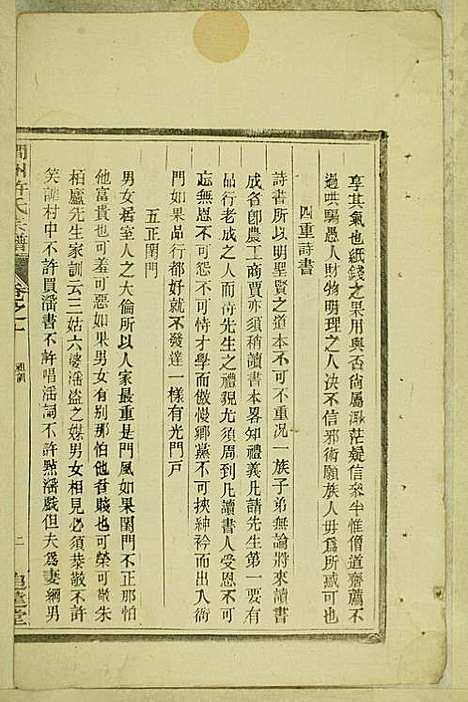 享其氣也紙錢之果用與否尚屬渺茫疑信參半惟僧道齋薦不
過哄騙愚人財物明理之人决不信邪術願族人毋爲所惑可也
四重詩書
詩書所以明聖賢之道本不可不重况一族子弟無論將來讀書
成名卽農工商賈亦須稍讀書本畧知禮義凡請先生第一要有
品行老成之人而待先生之禮貌尤須周到凡讀書人受恩不可
忘無恩不可怨不可恃才學而傲慢鄉黨不可挾紳衿而出入衙
門如果品行都好就不發達一樣有光門戶
五正閨門
男女居室人之大倫所以人家最重是門風如果閨門不正那怕
他富貴也可羞可惡如果男女有别那怕他貧賤也可榮可敬朱
柏廬先生家訓云三姑六婆淫盜之媒男女相見必須恭敬不許
笑謔村中不許買淫書不許唱淫詞不許點淫戲但夫爲妻綱男
潤州許氏宗譜
卷之一
二